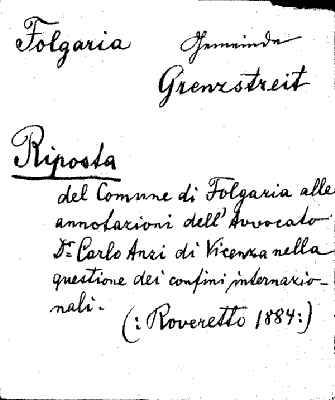 Folgaria Gemeinde
Grenzstreit
Riposta
del Comune di Folgaria alle
annotazioni dell'Avvocato
Dr Carlo Anzi di Vicenza nella
questione dei confini internazio-
nali.
(: Roveretto 1884:)